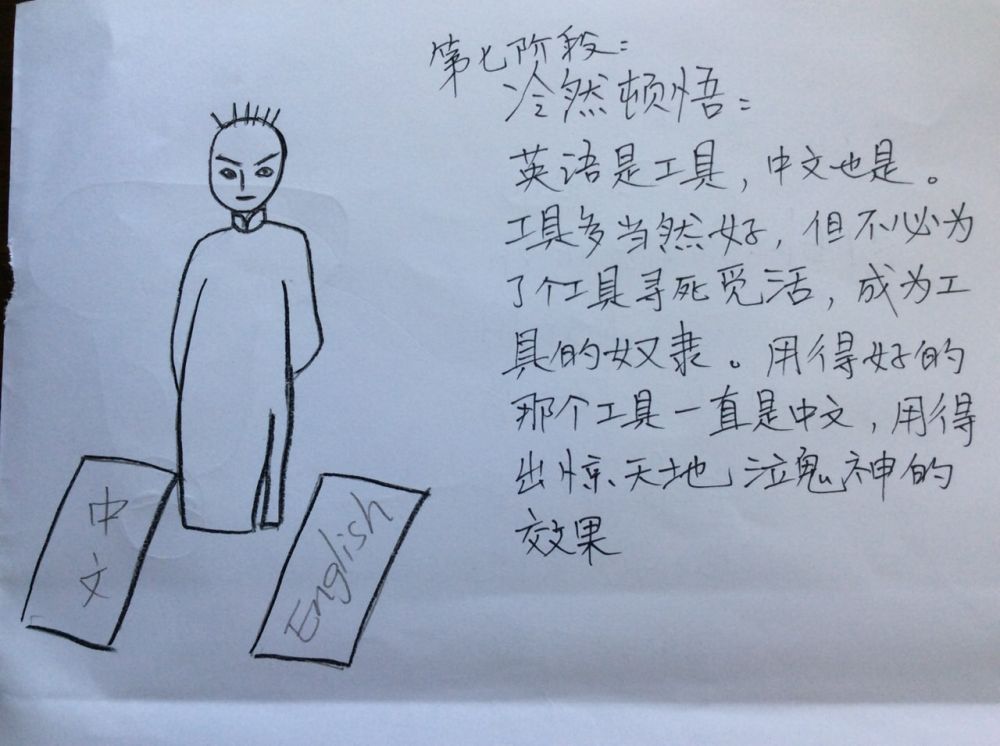 第七阶段：
冷然顿悟：
英语是工具，中文也是。
工具多当然好，但不必为
了个工具寻死觅活，成为工
具的奴隶。用得好的
那个工具一直是中文，用得
出惊天地泣鬼神的
效果
中文
English